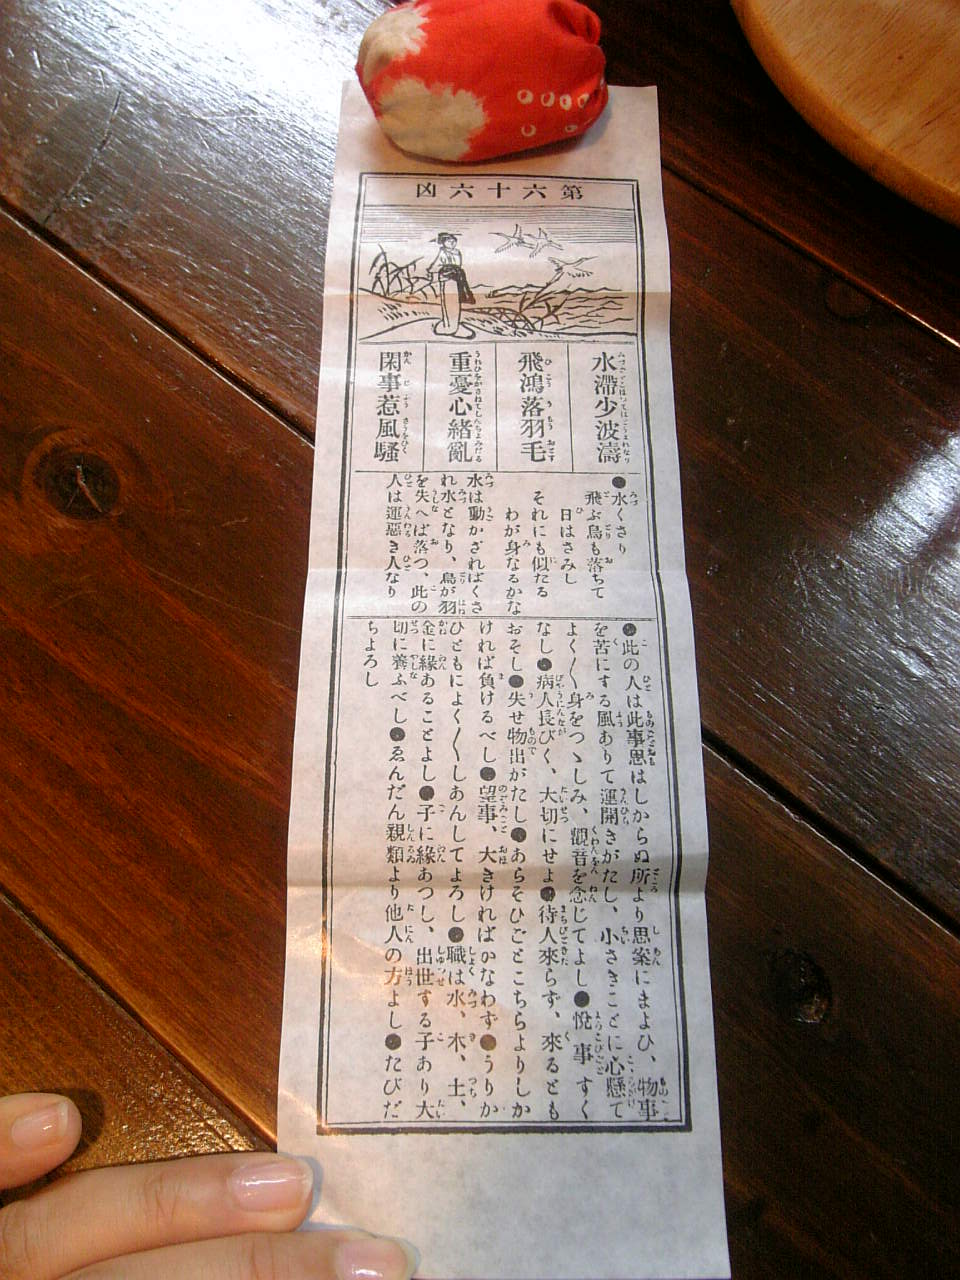 第六十六凶
水滯少波濤
飛鴻落羽毛
重憂心緒亂
閑事惹風騷
●水くさり
飛ぶ鳥も落ちて
日はさみし
それにも似たる
わが身なるかな
水は動かざればくさ
れ水となり、鳥が羽
を失へば落つ、此の
人は運惡き人なり
●此の人は此事思はしからぬ所より思案にまよひ、物事
を苦にする風ありて運開きがたし、小さきことに心懸て
よく〱身をつゝしみ、觀音を念じてよし●悅事すく
なし●病人長びく、大切にせよ●待人來らず、來るとも
おそし●失せ物出がたし●あらそひごとこちらよりしか
ければ負けるべし●望事、大きければかなわず●うりか
ひともによく〱しあんしてよろし●職は水、木、土、
金に緣あることよし●子に緣あつし、出世する子あり大
切に養ふべし●ゑんだん親類より他人の方よし●たびだ
ちよろし